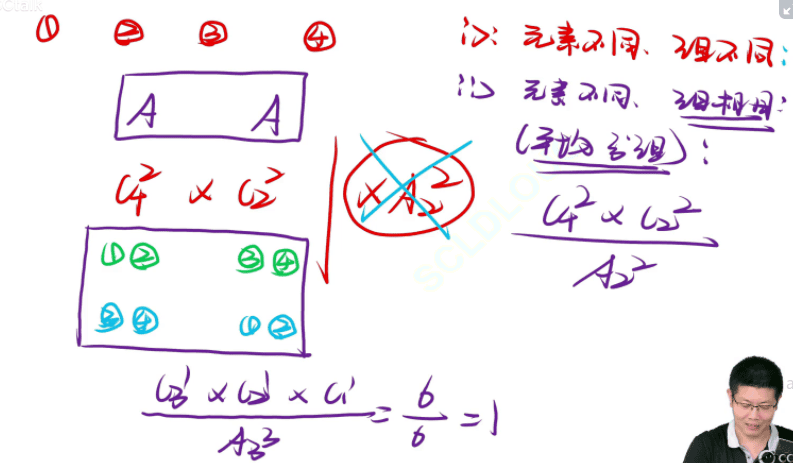 ① ② ③ ④
A A
C₄² × C₂² × A₂²
①② ③④
③④ ①②
C₃¹ × C₂¹ × C₁¹ / A₃³ = 6/6 = 1
i>: 元素不同、组不同:
ii> 元素不同、组相同:
(平均分组):
C₄² × C₂² / A₂²